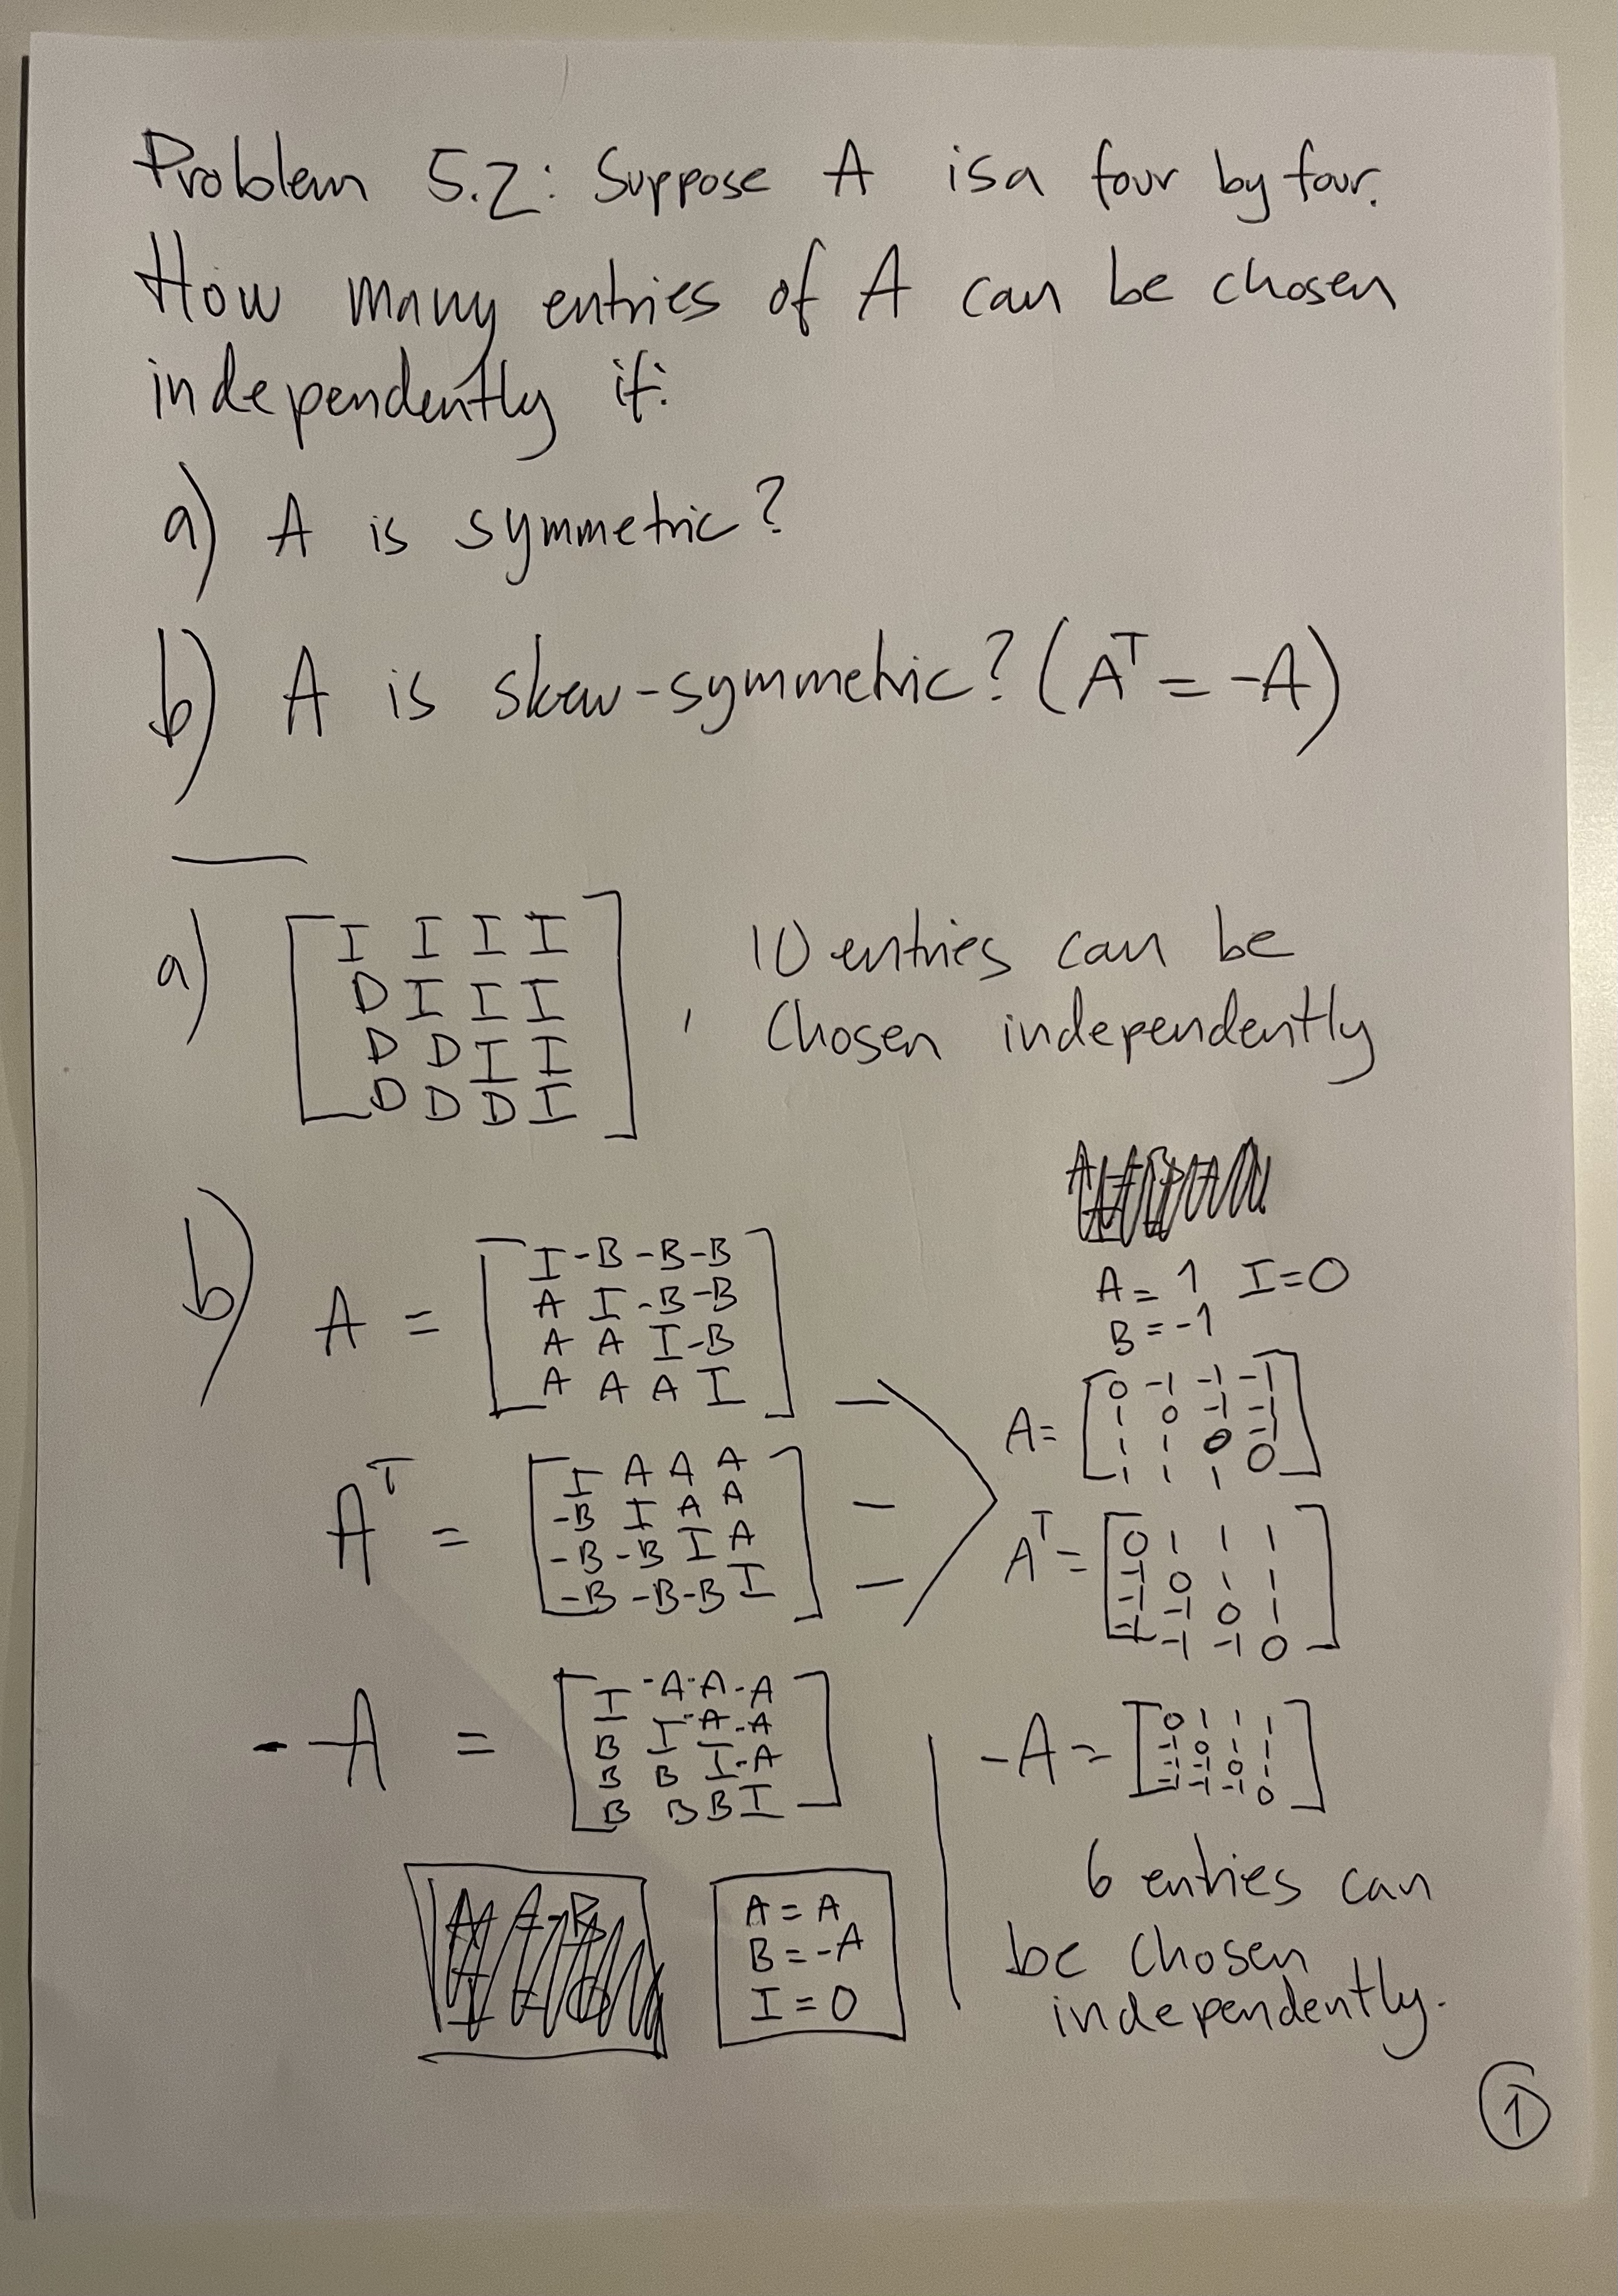 Problem 5.2: Suppose A is a four by four.
How many entries of A can be chosen
independently if:
a) A is symmetric?
b) A is skew-symmetric? (Aᵀ = -A)
a) [I I I I
D I I I
D D I I
D D D I] , 10 entries can be
chosen independently
b) A = [I -B -B -B
A I -B -B
A A I -B
A A A I]
Aᵀ = [I A A A
-B I A A
-B -B I A
-B -B -B I]
- -A = [I -A -A -A
B I -A -A
B B I -A
B B B I]
A = A
B = -A
I = 0
A = 1 I = 0
B = -1
A = [0 -1 -1 -1
1 0 -1 -1
1 1 0 -1
1 1 1 0]
Aᵀ = [0 1 1 1
-1 0 1 1
-1 -1 0 1
-1 -1 -1 0]
-A = [0 1 1 1
-1 0 1 1
-1 -1 0 1
-1 -1 -1 0]
6 entries can
be chosen
independently.
1